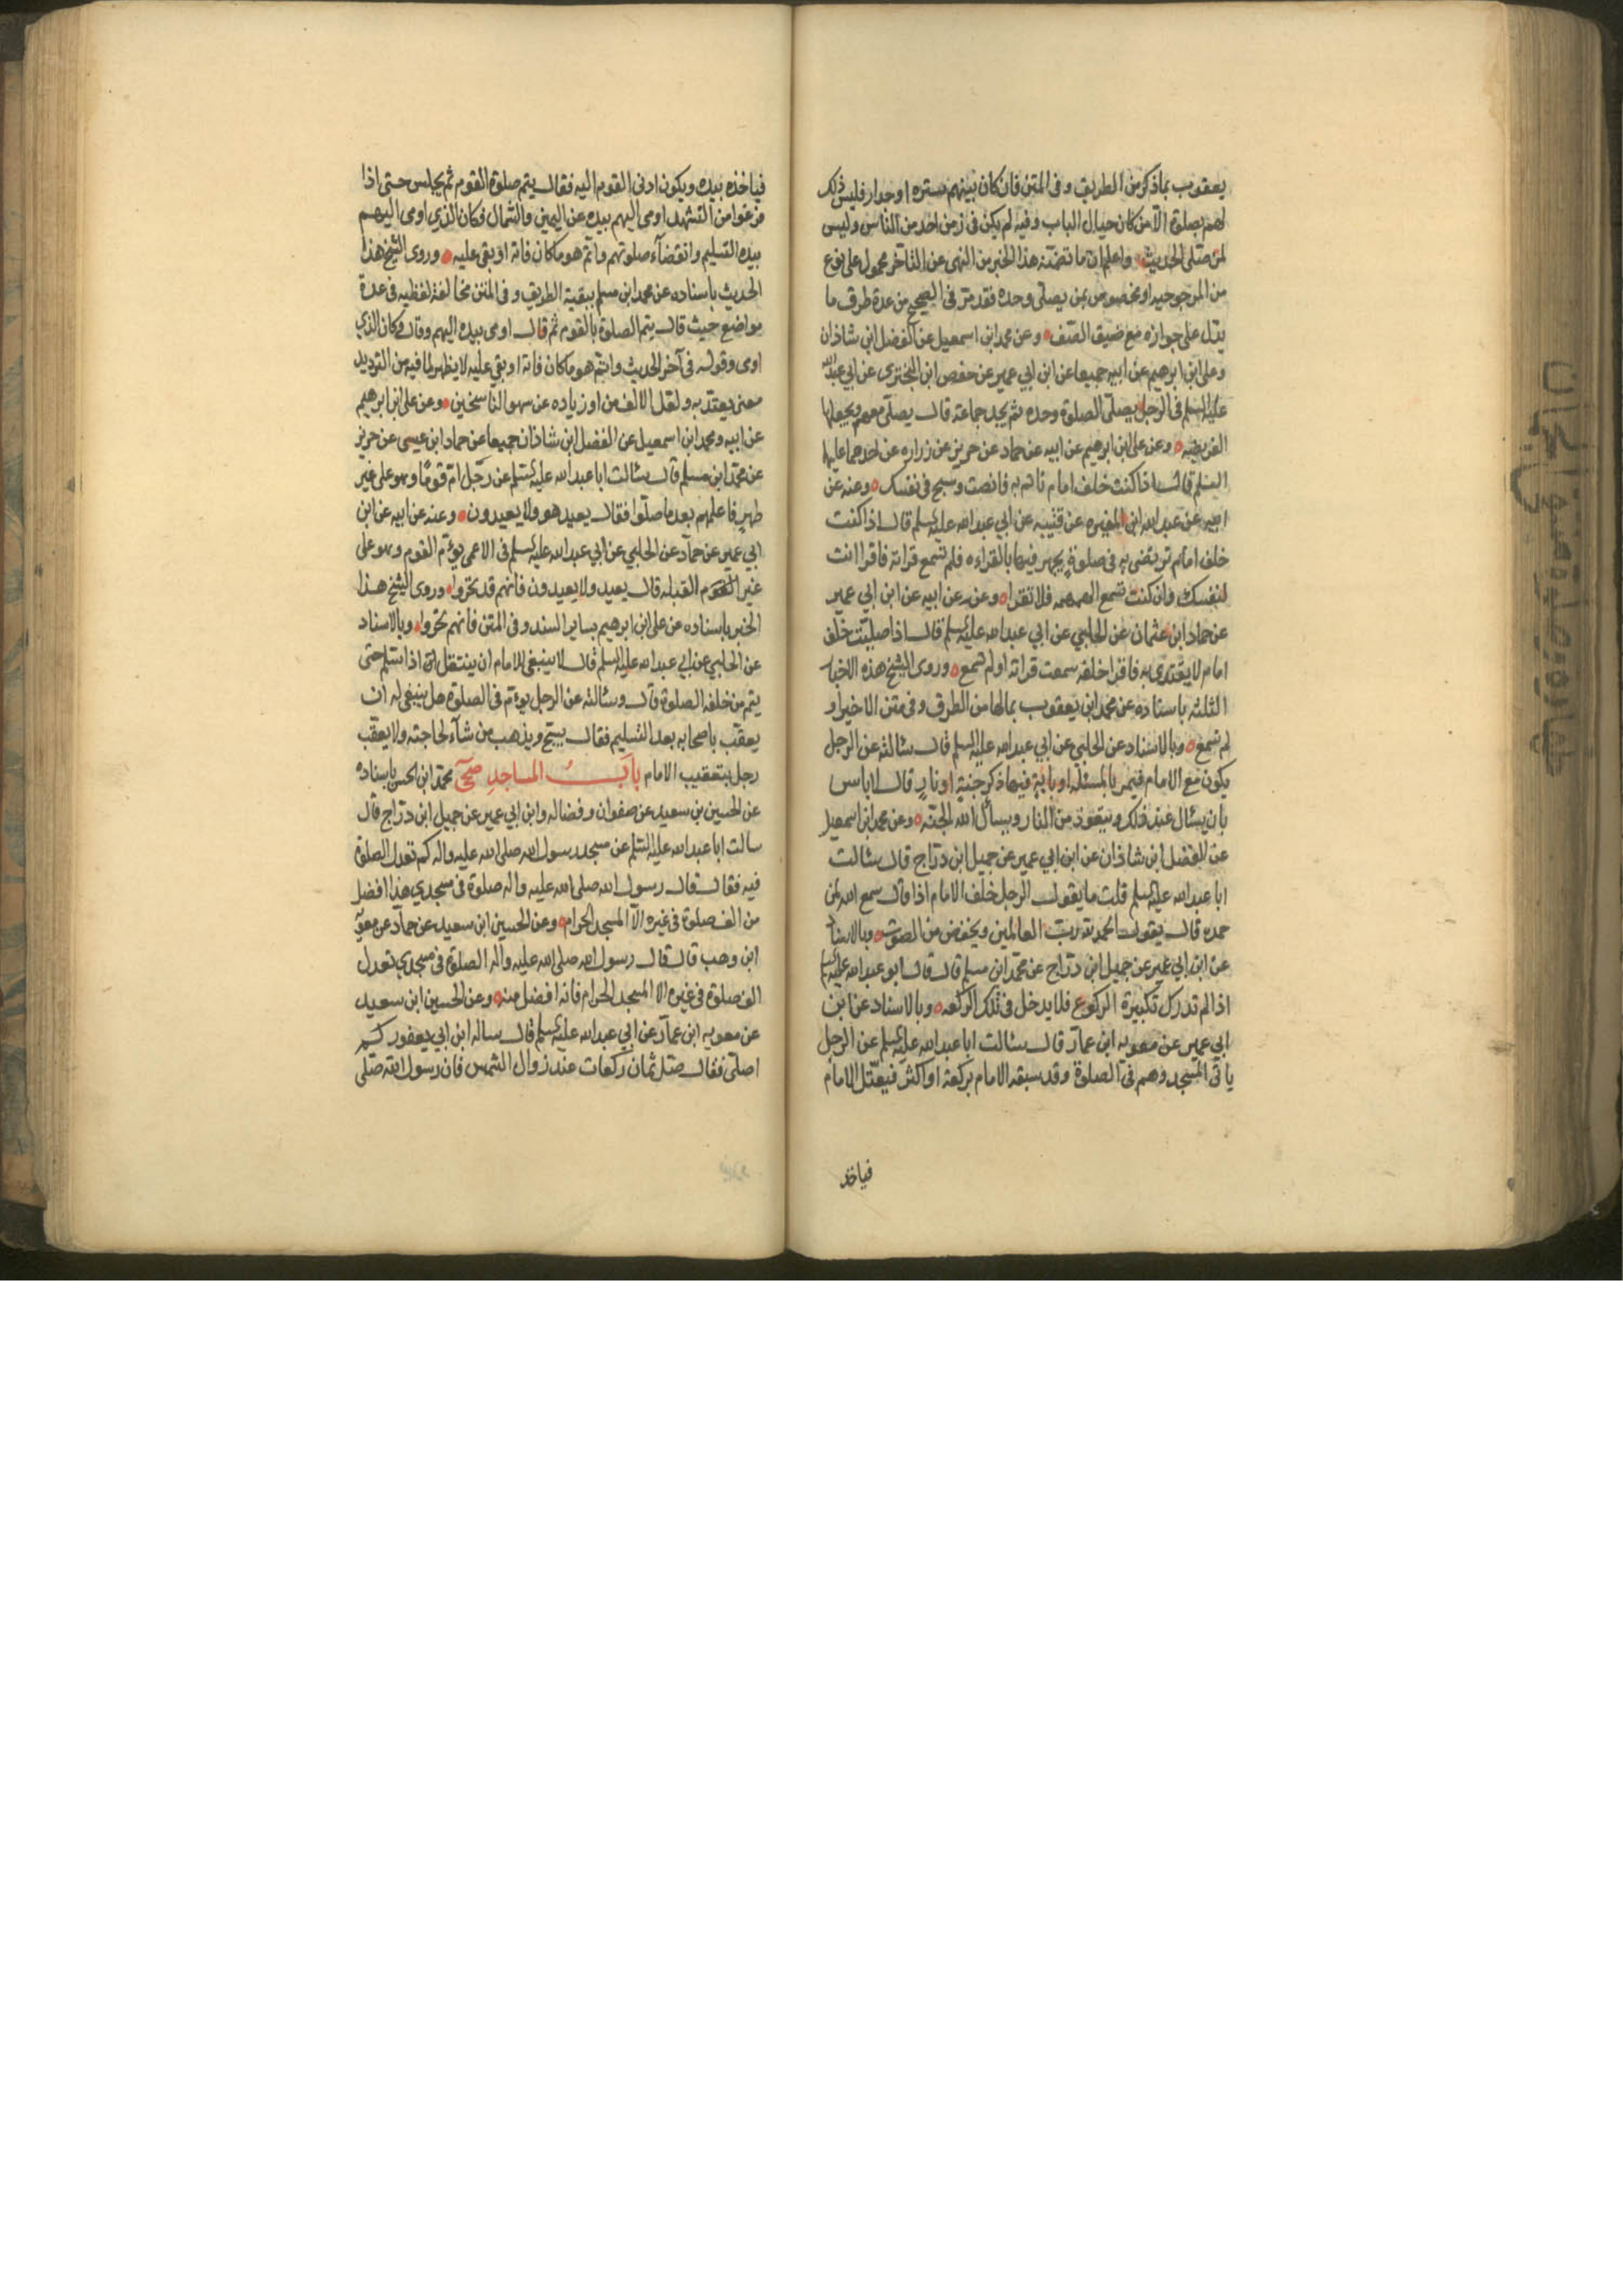 يعقوب بماذكر من الطريق وفى المتن فان كان بينهم ستره اوجدار فليس ذلك
لهم بصلوة الا من كان حيال الباب وفيه لم يكن فى زمن احد من الناس وليس
لمن صلى الحديث واعلم ان ما تضمنه هذا الخبر من النهى عن التاخر محمول على نوع
من المرجوحيه او مخصوص بمن يصلى وحده فقد مر فى الصحيح من عدة طرق ما
يدل على جوازه مع ضيق الصف وعن محمد ابن اسمعيل عن الفضل ابن شاذان
وعلى ابن ابرهيم عن ابيه جميعا عن ابن ابي عمير عن حفص ابن البختري عن ابي عبدالله
عليه السلم فى الرجل يصلى الصلوة وحده ثم يجد جماعة قال يصلى معهم ويجعلها
الفريضه وعن على ابن ابرهيم عن ابيه عن حماد عن حريز عن زراره عن احدهما عليهما
السلم قال اذا كنت خلف امام تاتم به فانصت وسبح فى نفسك وعنه عن
ابيه عن عبد الله ابن المغيره عن قتيبه عن ابي عبد الله عليه السلم قال اذا كنت
خلف امام ترتضى به فى صلوة يجهر فيها بالقراءه فلم تسمع قراته فاقرا انت
لنفسك وان كنت تسمع الهمهمه فلا تقرا وعنه عن ابيه عن ابن ابي عمير
عن حماد ابن عثمان عن الحلبي عن ابي عبد الله عليه السلم قال اذا صليت خلف
امام لا يقتدى به فاقرا خلفه سمعت قراته اولم تسمع وروى الشيخ هذه الاخبار
الثلثه باسناده عن محمد ابن يعقوب بمالها من الطرق وفى متن الاخير او
لم تسمع وبالاسناد عن الحلبي عن ابي عبد الله عليه السلم قال سئالته عن الرجل
يكون مع الامام فيمر بالمسئله او باية فيها ذكر جنية او نار قال لاباس
بان يسئال عند ذلك ويتعوذ من النار ويسال الله الجنه وعن محمد ابن اسمعيل
عن الفضل ابن شاذان عن ابن ابي عمير عن جميل ابن دراج قال سئالت
ابا عبد الله عليه السلم قلت ما يقول الرجل خلف الامام اذا قال سمع الله لمن
حمده قال يقول الحمد لله رب العالمين ويخفض من الصوت وبالاسناد
عن ابن ابي عمير عن جميل ابن دراج عن محمد ابن مسلم قال قال ابو عبد الله عليه السلم
اذا لم تدرك تكبيرة الركوع فلا يدخل فى تلك الركعه وبالاسناد عن ابن
ابي عمير عن معويه ابن عمار قال سئالت ابا عبد الله عليه السلم عن الرجل
ياتى المسجد وهم فى الصلوة وقد سبقه الامام بركعة او اكثر فيعتل الامام
فياخذ
فياخذه بيده ويكون ادنى القوم اليه فقال يتم صلوة القوم ثم يجلس حتى اذا
فرغوا من التشهد اومى اليهم بيده عن اليمين والشمال فكان الذى اومى اليهم
بيده التسليم وانقضآء صلوتهم واتم هو ما كان فاته او بقى عليه وروى الشيخ هذا
الحديث باسناده عن محمد ابن مسلم ببقية الطريق وفى المتن مخالفة لفظيه فى عدة
مواضع حيث قال يتم الصلوة بالقوم ثم قال اومى بيده اليهم وقال وكان الذي
اومى وقوله فى آخر الحديث واتم هو ما كان فاته او بقي عليه لا يظهر لما فيه من الترديد
معنى يعتد به ولعل الالف من او زياده عن سهو الناسخين وعن على ابن ابرهيم
عن ابيه ومحمد ابن اسمعيل عن الفضل ابن شاذان جميعا عن حماد ابن عيسى عن حريز
عن محمد ابن مسلم قال سئالت ابا عبد الله عليه السلم عن رجل ام قوما وهو على غير
طهر فاعلمهم بعد ما صلوا فقال يعيد هو ولا يعيدون وعنه عن ابيه عن ابن
ابي عمير عن حماد عن الحلبي عن ابي عبد الله عليه السلم فى الاعمى يؤم القوم وهو على
غير القبله قال يعيد ولا يعيدون فانهم قد تحروا وروى الشيخ هذا
الخبر باسناده عن على ابن ابرهيم بساير السند وفى المتن فانهم تحروا وبالاسناد
عن الحلبي عن ابي عبد الله عليه السلم قال لا ينبغى للامام ان ينتقل اذا سلم حتى
يتم من خلفه الصلوة قال وسئالته عن الرجل يؤم فى الصلوة هل ينبغى له ان
يعقب باصحابه بعد التسليم فقال يسبح ويذهب من شآء لحاجته ولا يعقب
رجل بتعقيب الامام باب المساجد صحى محمد ابن الحسن باسناده
عن الحسين بن سعيد عن صفوان وفضاله وابن ابي عمير عن جميل ابن دراج قال
سالت ابا عبد الله عليه السلم عن مسجد رسول الله صلى الله عليه واله كم تعدل الصلوة
فيه فقال قال رسول الله صلى الله عليه واله صلوة فى مسجدي هذا افضل
من الف صلوة فى غيره الا المسجد الحرام وعن الحسين ابن سعيد عن حماد عن معوية
ابن وهب قال قال رسول الله صلى الله عليه واله الصلوة فى مسجدي تعدل
الف صلوة فى غيره الا المسجد الحرام فانه افضل منه وعن الحسين ابن سعيد
عن معويه ابن عمار عن ابي عبد الله عليه السلم قال ساله ابن ابي يعفور كم
اصلى فقال صل ثمان ركعات عند زوال الشمس فان رسول الله صلى